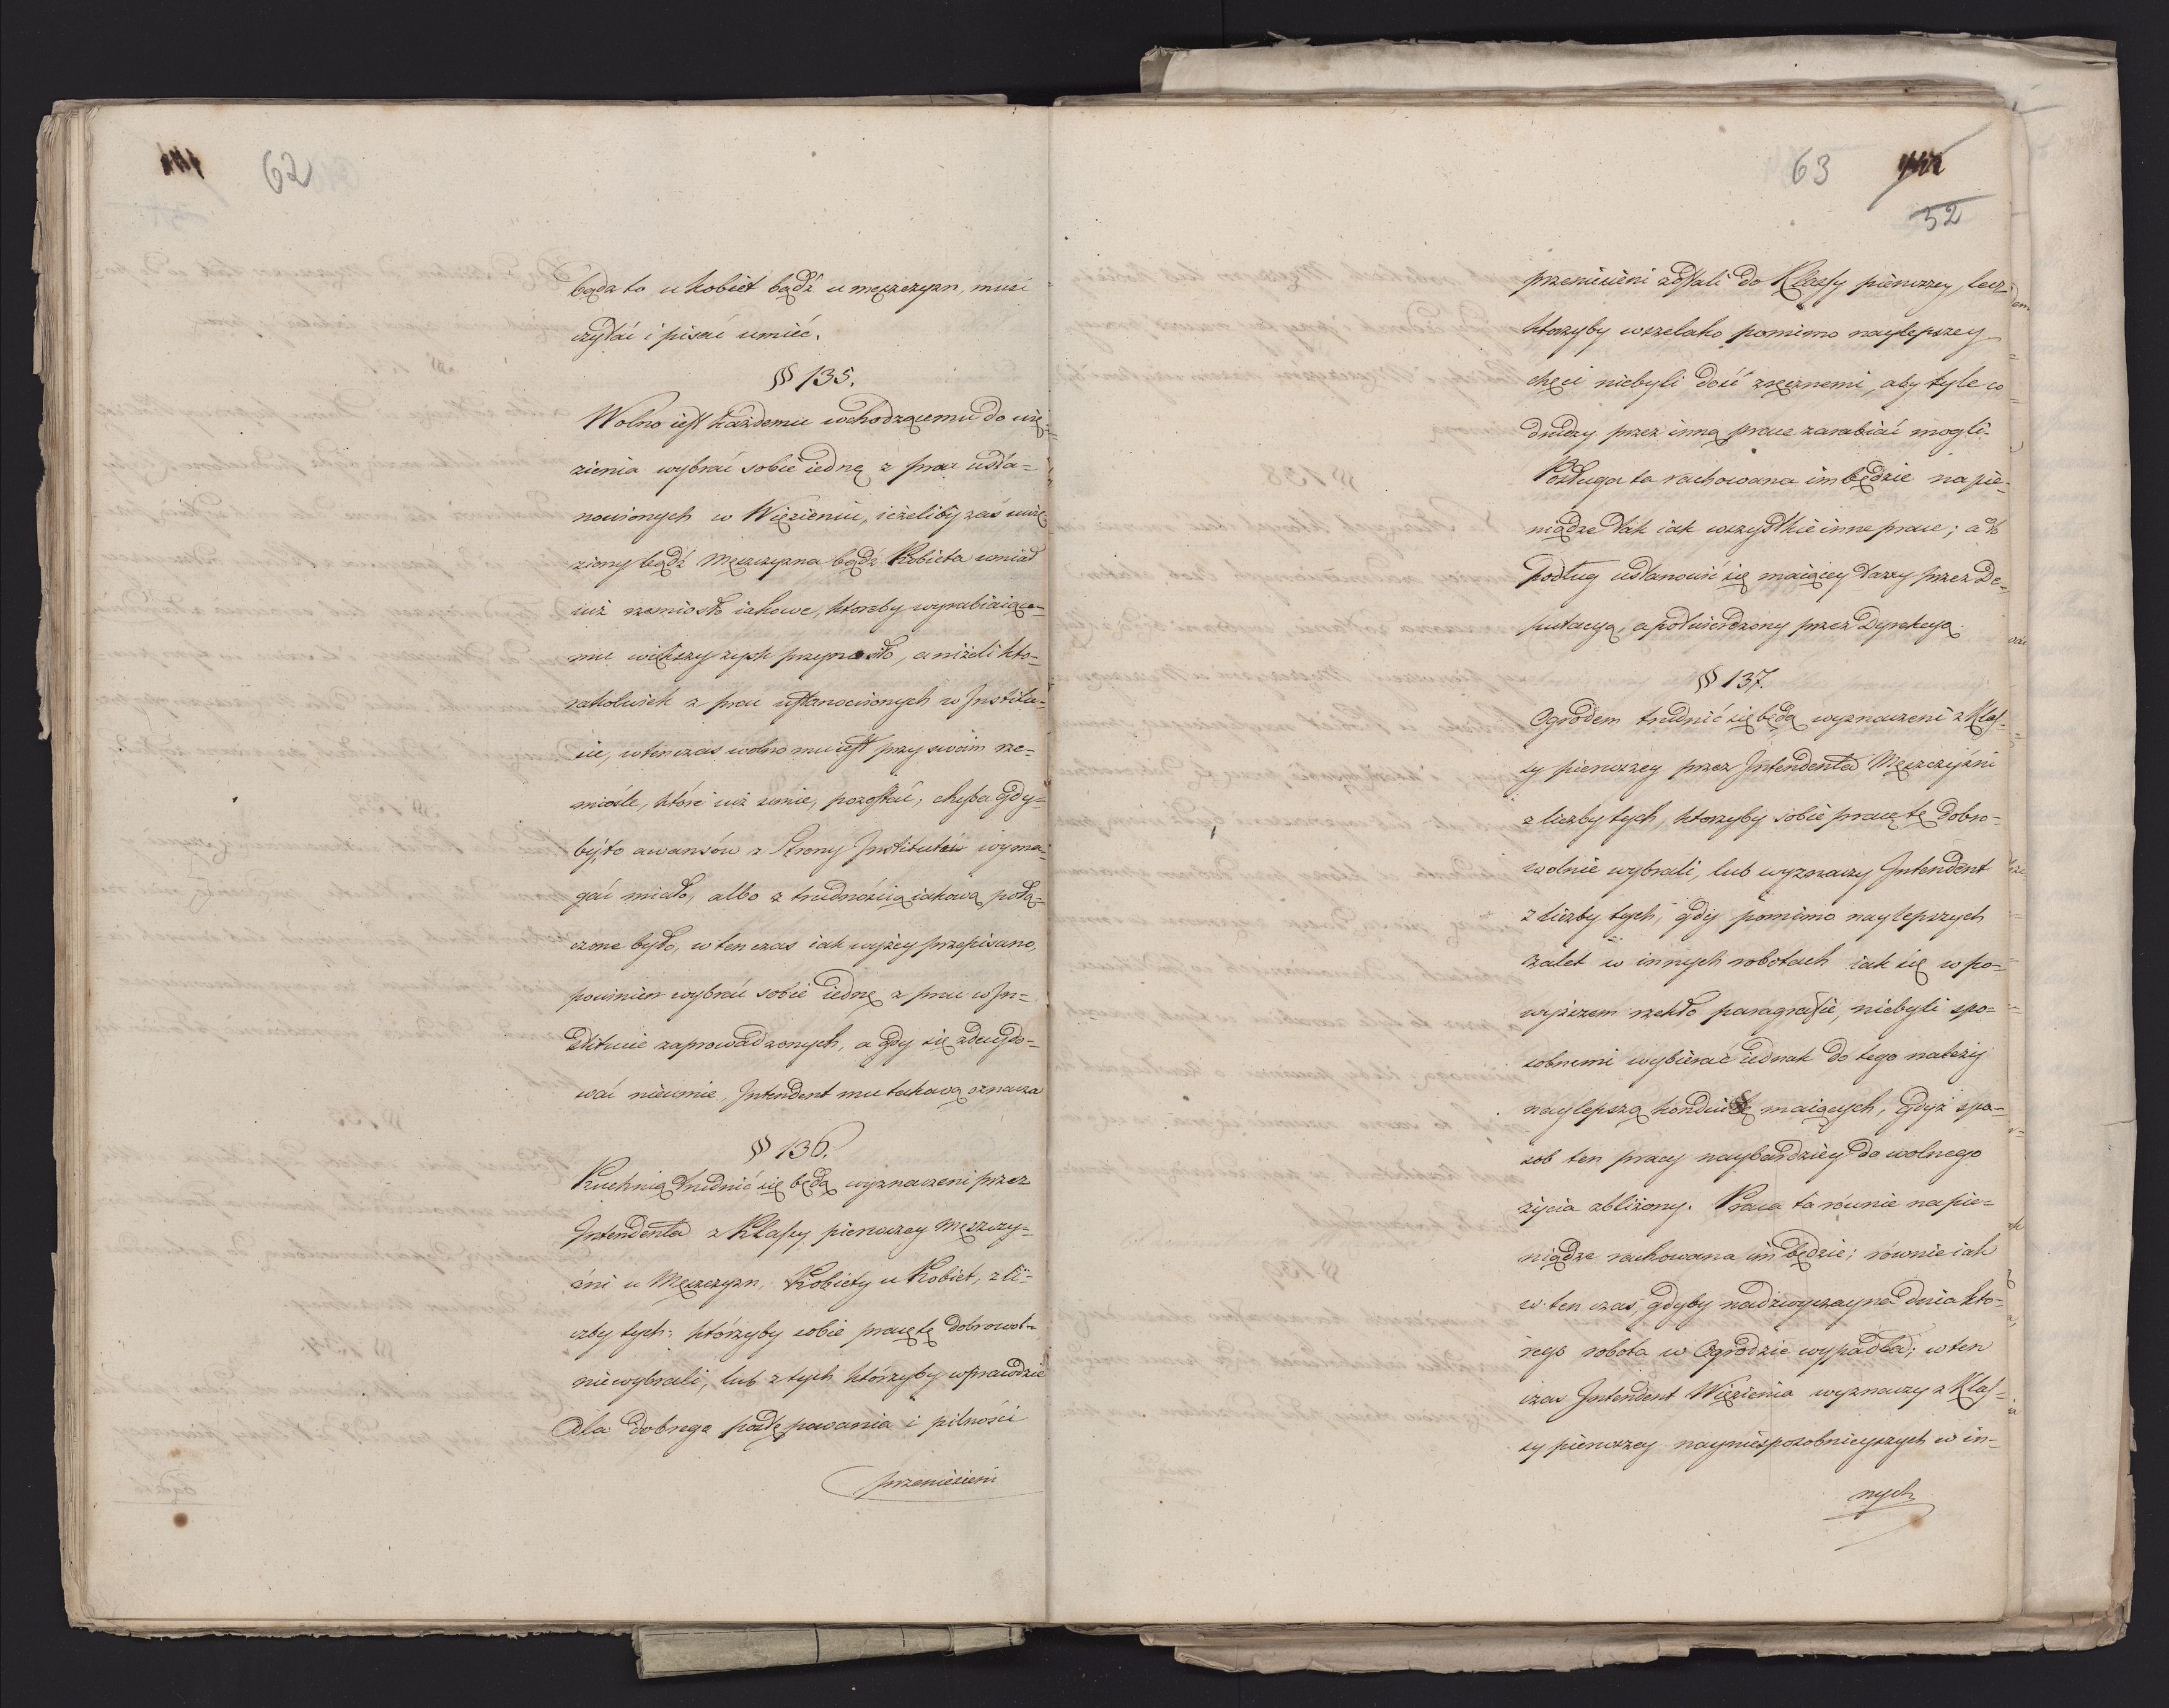 62
bądz to u kobiet bądź u męszczyzn, musi
czytać i pisać umieć.
§§ 135.
Wolno iest każdemu wchodzącemu do wię-
zienia wybrać sobie iednę z prac usta=
nowionych w Więzieniu, ieżeliby zaś uwię-
ziony bądź Męszczyzna bądź Kobieta umiał
iuż rzemiosło iakowe, ktoreby wyrabiaiące-
mu większy zysk przyniosło, aniżeli kto-
rakolwiek z prac ustanowionych w Institu-
cie, wtenczas wolno mu iest przy swoim rze-
miośle, które iuż umie, pozostać; chyba gdy=
by to awansów z Strony Institutów wyma-
gać miało, albo z trudnością iakową połą-
czone było, w ten czas iak wyżey przepisano,
powinien wybrać sobie iednę z prac w In=
stitucie zaprowadzonych, a gdy się zdecydo-
wać nieumie, Intendent mu takową oznacza
§§ 136.
Kuchnią trudnić się będą wyznaczeni przez
Intendenta z Klassy pierwszey Męszczy=
źni u Męszczyzn, Kobiety u Kobiet, z li-
czby tych, którzyby sobie pracę tę dobrowol-
nie wybrali, lub z tych którzyby wprawdzie
dla dobrego postępowania i pilności
przeniesieni
63
52
przeniesieni zostali do Klassy pierwszey, lecz
ktorzyby wszelako pomimo naylepszey
chęci niebyli dość zręcznemi, aby tyle co
drudzy przez inną pracę zarabiać mogli.
Posługa ta rachowana im będzie na pie-
niądze tak iak wszystkie inne prace; a to
podług ustanowić się maiącey taxy przez De-
putacyą, a potwierdzony przez Dyrekcyą.
§§ 137.
Ogrodem trudnić się będą wyznaczeni z Klas-
sy pierwszey przez Intendenta Męszczyźni
z liczby tych, ktorzyby sobie pracę tę dobro-
wolnie wybrali, lub wyznaczy Intendent
z liczby tych, gdy pomimo naylepszych
zalet w innych robotach iak się w po-
wyższem rzekło paragrafie, niebyli spo-
sobnemi wybierać iednak do tego należy
naylepszą konduitę maiących, gdyż spo-
sob ten pracy naybardziey do wolnego
życia zbliżony. Praca ta równie na pie-
niądze rachowana im będzie; równie iak
w ten czas, gdyby nadzwyczayna dnia kto-
rego robota w Ogrodzie wypadła; w ten
czas Intendent Więzienia wyznaczy z Klas-
sy pierwszey nayniesposobnieyszych w in-
nych